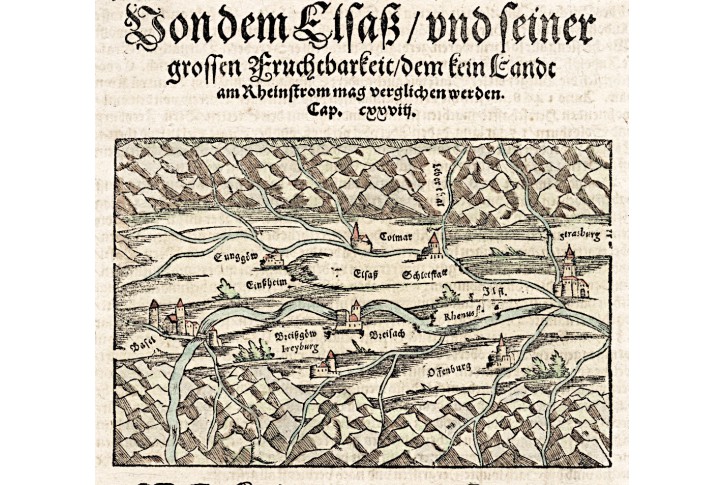 Von dem Elsaß / vnd seiner
grossen Fruchtbarkeit/dem kein Landt
am Rheinstrom mag verglichen werden.
Cap. cxxviij.
Leberthal
Colmar
straßburg
Sunggöw
Elsaß
Schletstatt
Einßheim
Ill fl.
Rhenus fl.
Basel
Breißgöw
Breisach
freyburg
Offenburg